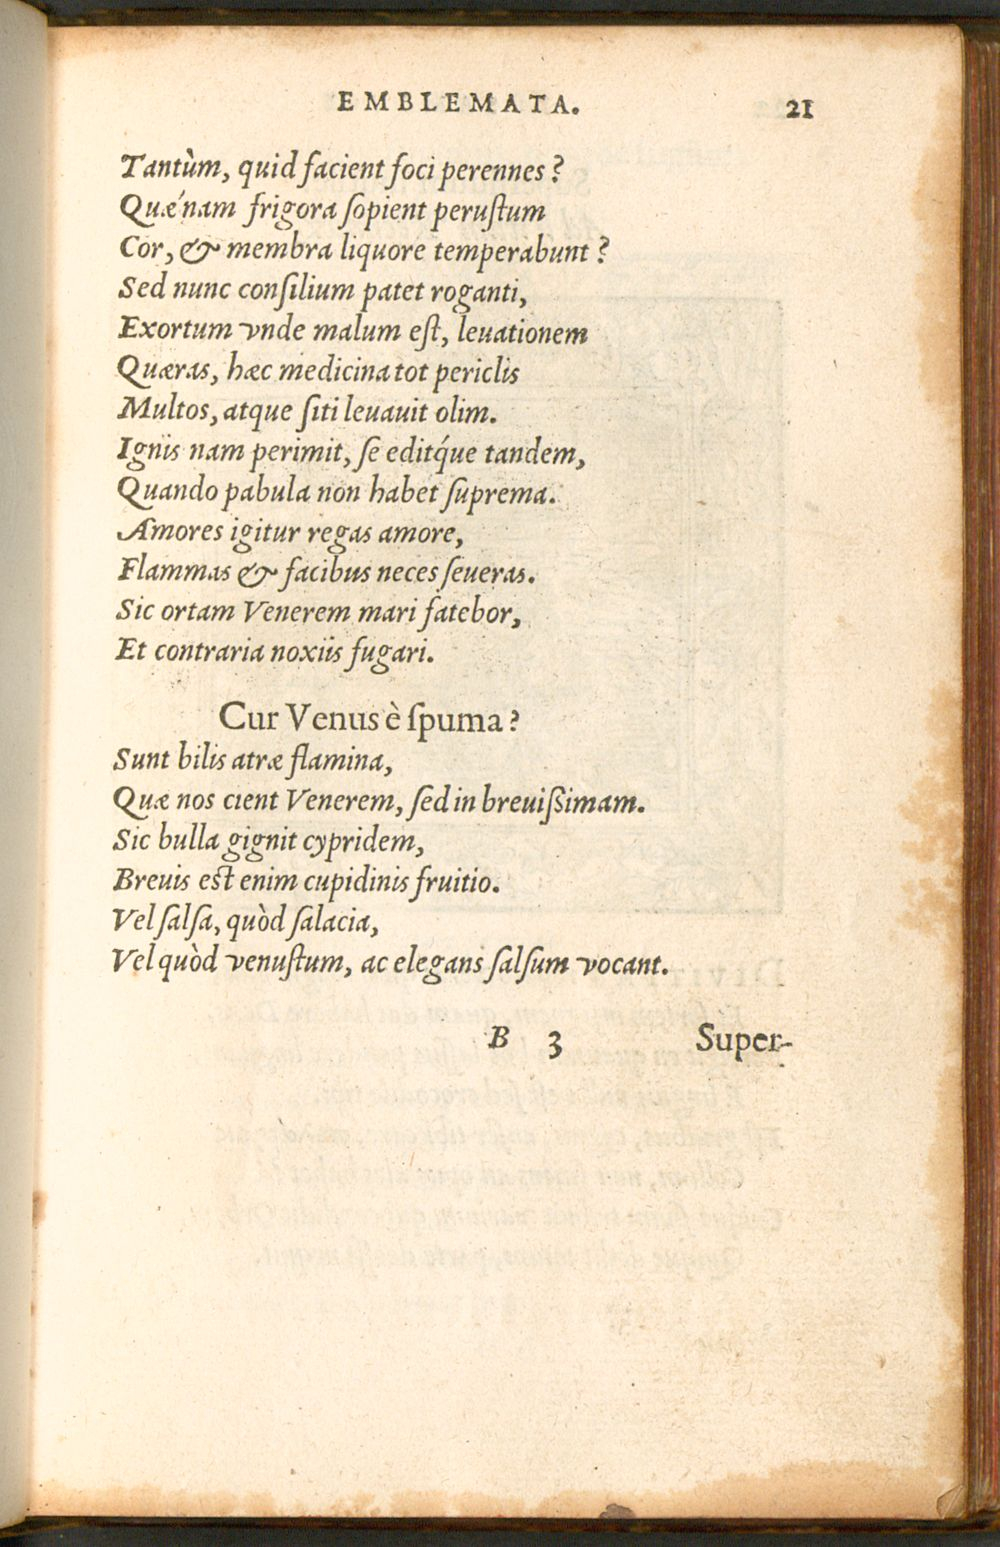 EMBLEMATA. 21
Tantùm, quid facient foci perennes?
Quæ´nam frigora ſopient peruſtum
Cor, & membra liquore temperabunt?
Sed nunc conſilium patet roganti,
Exortum vnde malum eſt, leuationem
Quæras, hæc medicina tot periclis
Multos, atque ſiti leuauit olim.
Ignis nam perimit, ſe editq́ue tandem,
Quando pabula non habet ſuprema.
Amores igitur regas amore,
Flammas & facibus neces ſeueras.
Sic ortam Venerem mari fatebor,
Et contraria noxiis fugari.
Cur Venus è ſpuma?
Sunt bilis atræ flamina,
Quæ nos cient Venerem, ſed in breuiſsimam.
Sic bulla gignit cypridem,
Breuis est enim cupidinis fruitio.
Vel ſalſa, quòd ſalacia,
Vel quòd venuſtum, ac elegans ſalſum vocant.
B 3 Super-